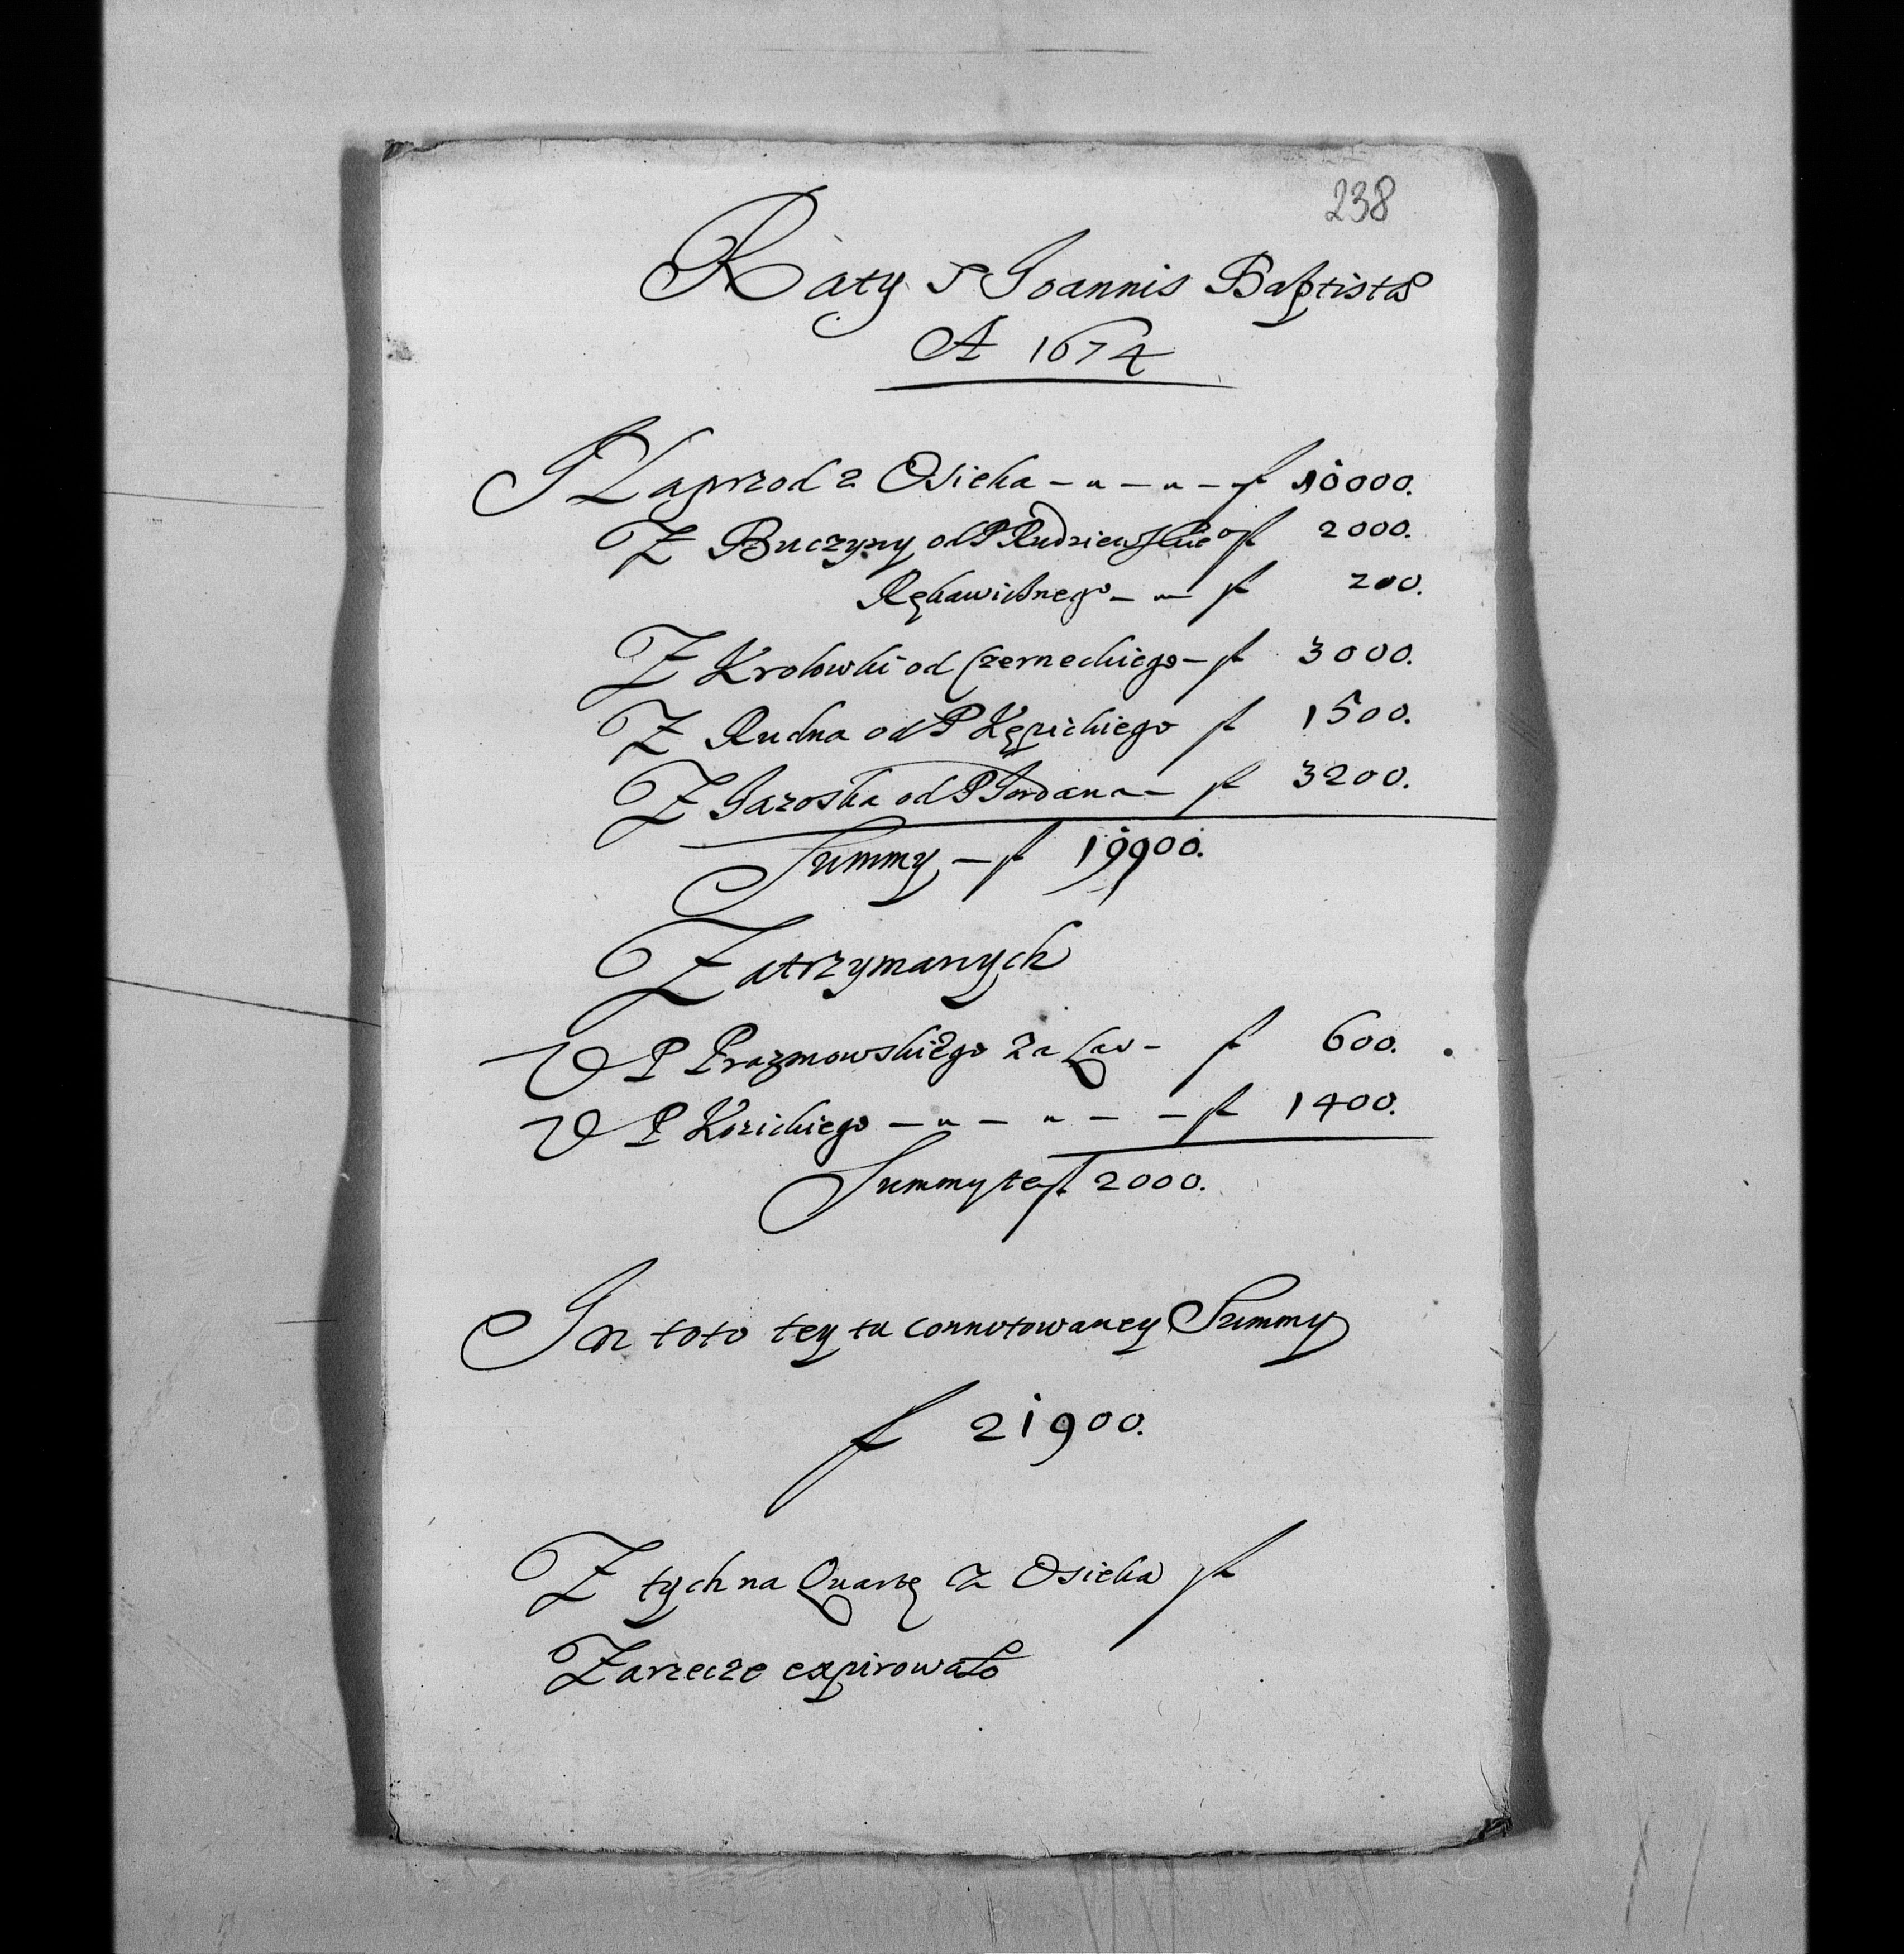 238
Raty S Joannis Baptistæ
A 1674
Naprzod z Osieka - - - - f 10000.
Z Buczyny od P Rudzienskie° f 2000.
Rękawicznego - - f 200.
Z Krolowki od Czerneckiego - f 3000.
Z Rudna od P Kępickiego f 1500.
Z Jaroska od P Jordana - f 3200.
Summy - f 19900.
Zatrzymanych
V P Prazmowskiego za - f 600.
V P Kozickiego - - - - - f 1400.
Summy te f 2000.
In toto tey tu connotowaney Summy
f 21900.
Z tych na Quartę z Osieka f
Zarzecze expirowało